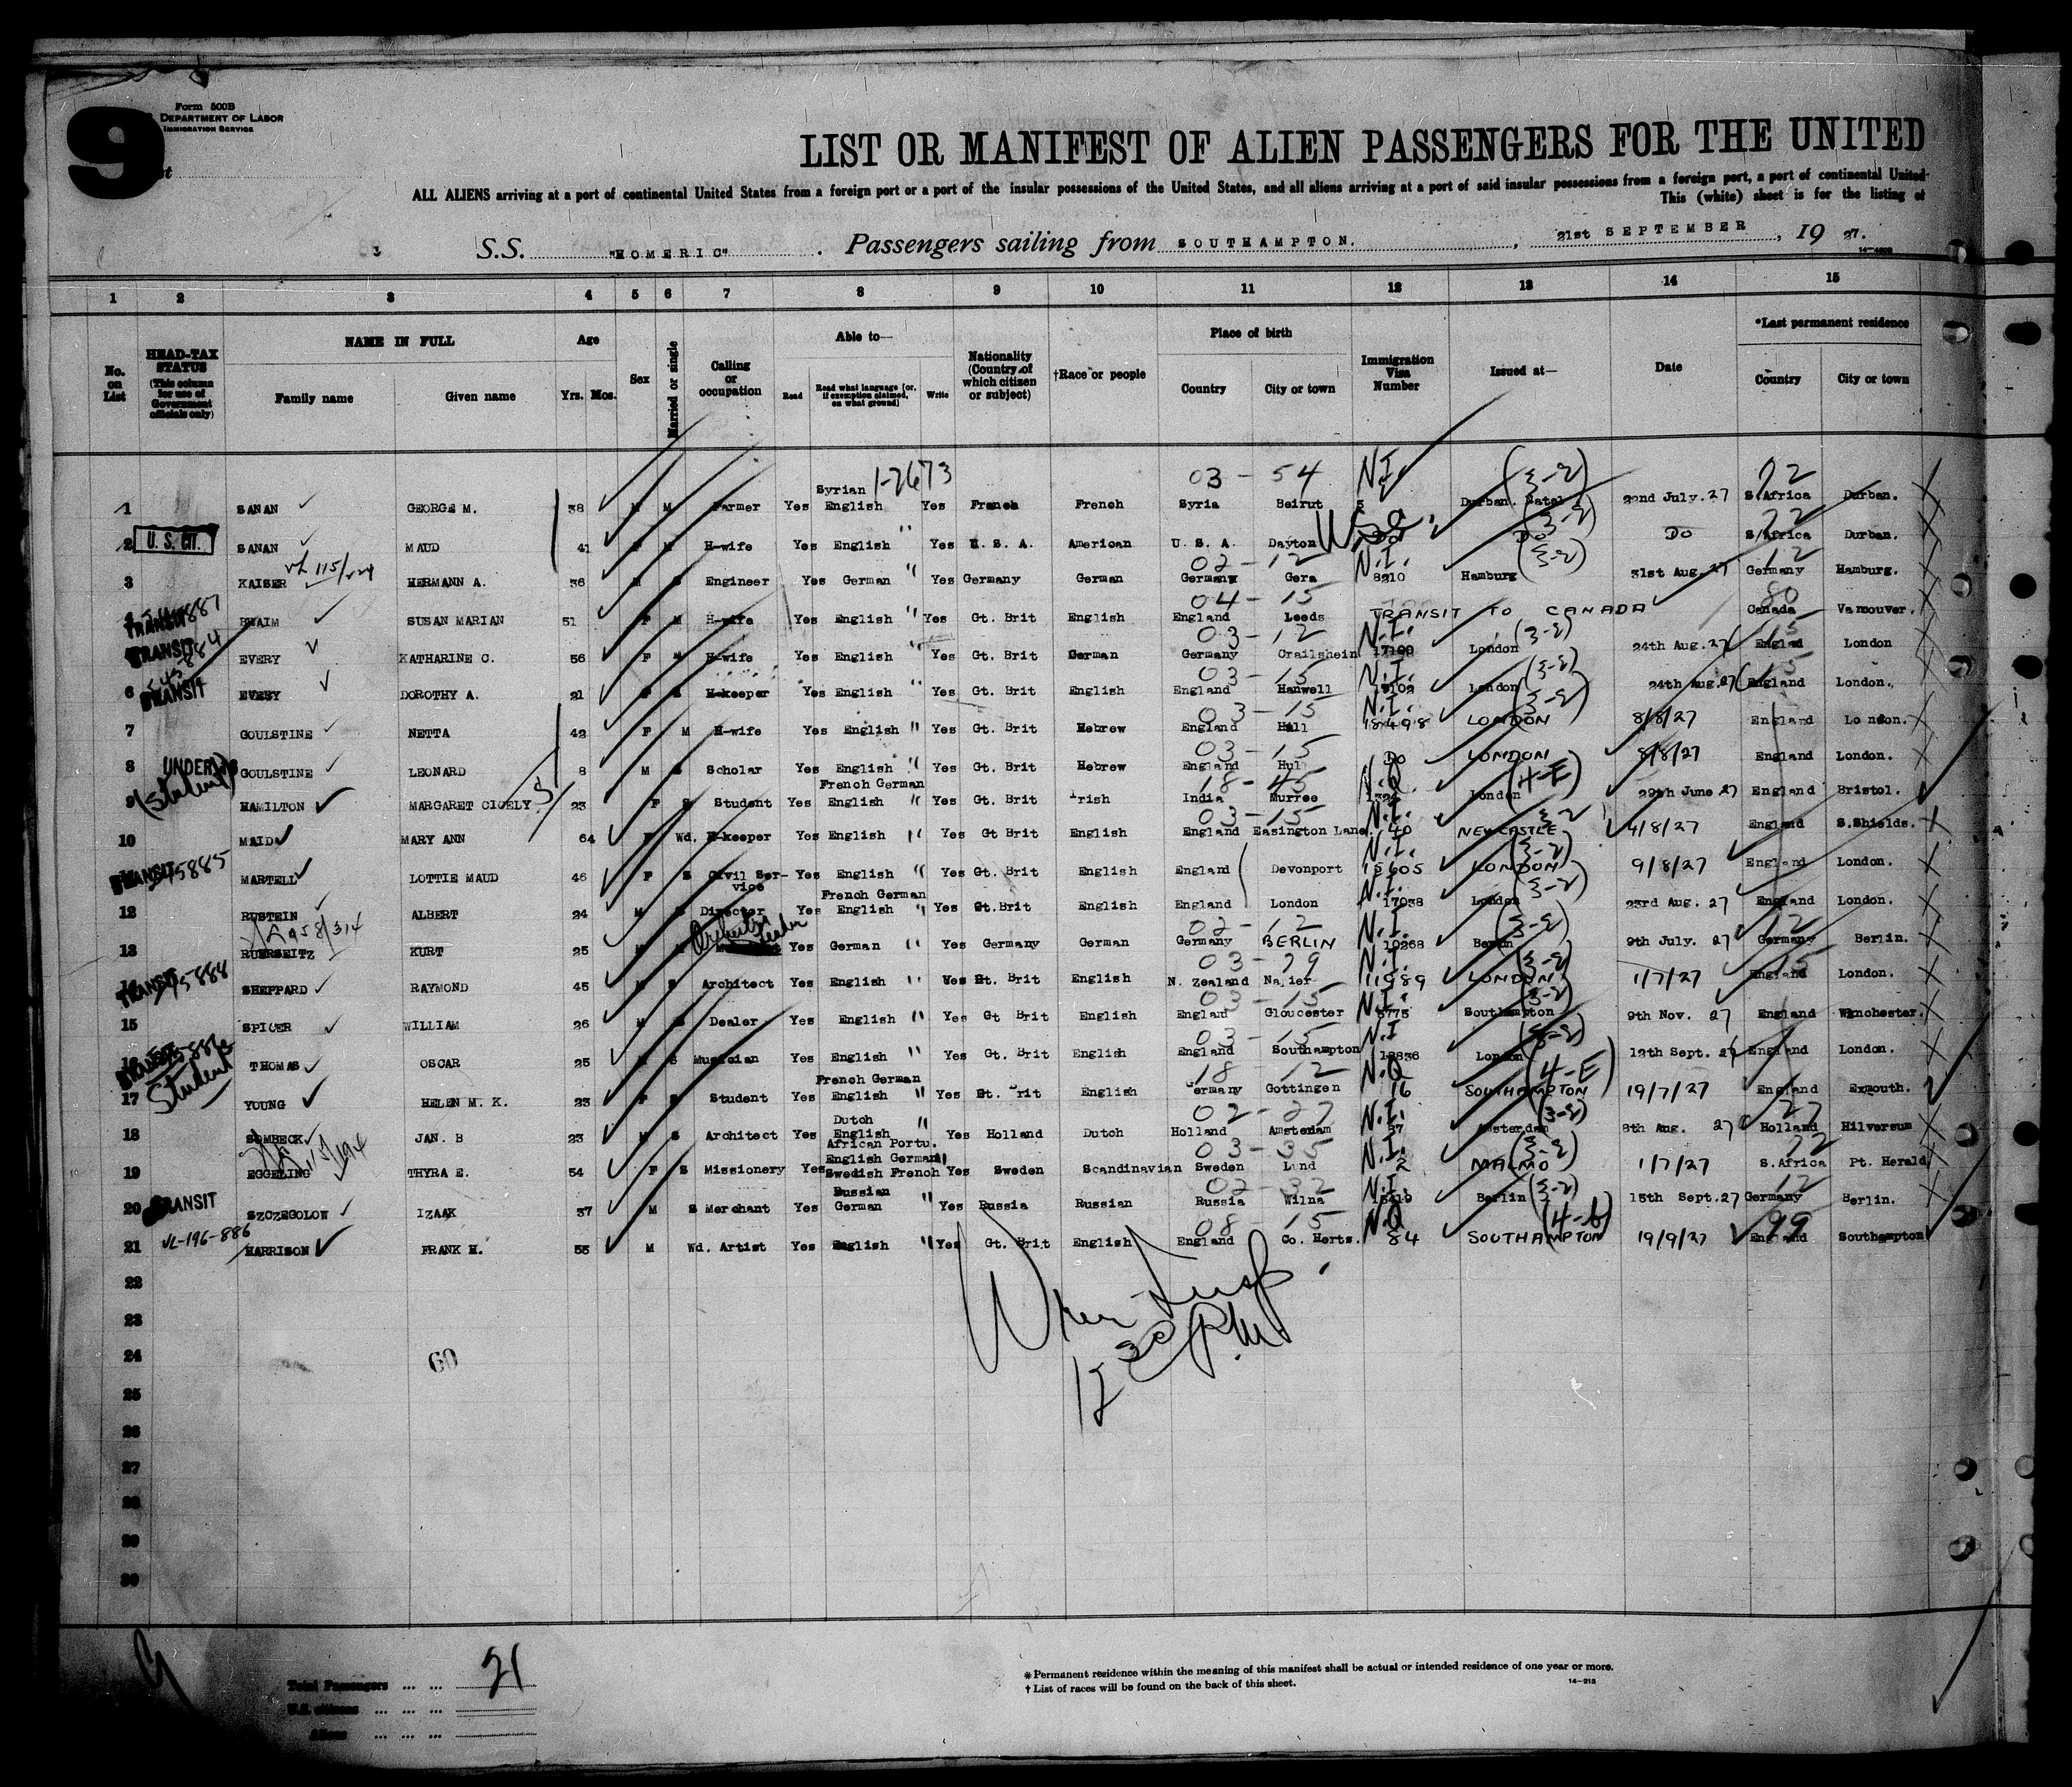 9
Form 500B
DEPARTMENT OF LABOR
IMMIGRATION SERVICE
LIST OR MANIFEST OF ALIEN PASSENGERS FOR THE UNITED
ALL ALIENS arriving at a port of continental United States from a foreign port or a port of the insular possessions of the United States, and all aliens arriving at a port of said insular possessions from a foreign port, a port of continental United
This (white) sheet is for the listing of
3 S.S. "HOMERIC" . Passengers sailing from SOUTHAMPTON. , 21st SEPTEMBER , 19 27.
1 2 3 4 5 6 7 8 9 10 11 12 13 14 15
No. on List
HEAD-TAX STATUS (This column for use of Government officials only)
NAME IN FULL
Family name Given name
Age
Yrs. Mos.
Sex
Married or single
Calling or occupation
Able to—
Read
Read what language [or, if exemption claimed, on what ground]
Write
Nationality (Country of which citizen or subject)
†Race or people
Place of birth
Country City or town
Immigration Visa Number
Issued at—
Date
*Last permanent residence
Country City or town
1-2673 03 - 54 N.I. (3-2) 72
Syrian
1 SANAN GEORGE M. 38 M M Farmer Yes English Yes French French Syria Beirut 5 Durban. Natal 22nd July. 27 S.Africa Durban.
2 U. S. CIT. SANAN MAUD 41 F M H-wife Yes English " Yes U. S. A. American U. S. A. Dayton Do (3-2) Do S/Africa Durban.
02 - 12 N.I. (3-2) 12
3 KAISER HERMANN A. 36 M S Engineer Yes German " Yes Germany German Germany Gera 8210 Hamburg 31st Aug. 27 Germany Hamburg.
04 - 15 80
TRANSIT BRAIM SUSAN MARIAN 51 F M H-wife Yes English " Yes Gt. Brit English England Leeds TRANSIT TO CANADA Canada Vancouver.
03 - 12 N.I. (3-2) 15
TRANSIT EVERY KATHARINE C. 56 F M H-wife Yes English " Yes Gt. Brit German Germany Crailsheim 17100 London 24th Aug. 27 England London
03 - 15 N.I. (3-2) 15
6 TRANSIT EVERY DOROTHY A. 21 F S H-keeper Yes English " Yes Gt. Brit English England Hanwell London 24th Aug. 27 England London.
03 - 15 N.I. (3-2)
7 GOULSTINE NETTA 42 F M H-wife Yes English " Yes Gt. Brit Hebrew England Hull 18498 LONDON 8/8/27 England London.
03 - 15
8 UNDER 16 GOULSTINE LEONARD 8 M S Scholar Yes English " Yes Gt. Brit Hebrew England Hull Do LONDON 8/8/27 England London.
French German 18 - 45 N.Q (4-E)
9 (Student) HAMILTON MARGARET CICELY. 23 F S Student Yes English " Yes Gt. Brit Irish India Murree London 29th June 27 England Bristol.
03 - 15 N.I. 3-2
10 MAIDA MARY ANN 64 F Wd. H-keeper Yes English " Yes Gt Brit English England Easington Lane. 40 NEWCASTLE 4/8/27 England S.Shields.
N.I. (3-2)
TRANSIT MARTELL LOTTIE MAUD 46 F S Civil Service Yes English " Yes Gt. Brit English England Devonport 15605 LONDON 9/8/27 England London.
French German N.I. (3-2)
12 RUSTEIN ALBERT 24 M S Director Yes English " Yes Gt.Brit English England London 17038 London 23rd Aug. 27 England London.
Orchestra Leader 02 - 12 N.I. (3-2) 12
13 RUHRSEITZ KURT 25 M Yes German " Yes Germany German Germany BERLIN 10268 Berlin 9th July. 27 Germany Berlin.
03 - 79 N.I. (3-2) 15
TRANSIT SHEPPARD RAYMOND 45 M S Architect Yes English " Yes Gt. Brit English N. Zealand Napier 11989 LONDON 1/7/27 England London.
03 - 15 N.I. (3-2)
15 SPICER WILLIAM 26 M S Dealer Yes English " Yes Gt Brit English England Gloucester 5775 Southampton 9th Nov. 27 England Winchester.
03 - 15 N.I (3-2)
THOMAS OSCAR 25 M S Musician Yes English " Yes Gt. Brit English England Southampton 18836 London 12th Sept. 27 England London.
French German 18 - 12 N.Q (4-E)
17 Student YOUNG HELEN M. K. 23 F S Student Yes English " Yes Gt. Brit English Germany Gottingen 16 SOUTHAMPTON 19/7/27 England Exmouth.
Dutch 02 - 27 N.I. (3-2) 27
18 SOMBECK JAN. B 23 M S Architect Yes English " Yes Holland Dutch Holland Amsterdam 37 Amsterdam 8th Aug. 27 Holland Hilversum
African Portu. 03 - 35 N.I. (3-2) 72
English German
19 EGGELING THYRA E. 54 F S Missionery Yes Swedish French " Yes Sweden Scandinavian Sweden Lund 2 MALMO 1/7/27 S.Africa Pt. Herald
Russian 02 - 32 N.I. (3-2) 12
20 TRANSIT SZCZEGOLOW IZAAK 37 M S Merchant Yes German " Yes Russia Russian Russia Wilna Berlin 15th Sept. 27 Germany Berlin.
VL-196-886 08 15 N.Q (4-b) 99
21 HARRISON FRANK H. 55 M Wd. Artist Yes English " Yes Gt. Brit English England Co. Herts. 84 SOUTHAMPTON 19/9/27 England Southampton
22
23
24 60
25
26
27
28
29
30
Total Passengers ... ... 21
U.S. citizens ... ... ...
Aliens ... ... ...
* Permanent residence within the meaning of this manifest shall be actual or intended residence of one year or more.
† List of races will be found on the back of this sheet.
14—213